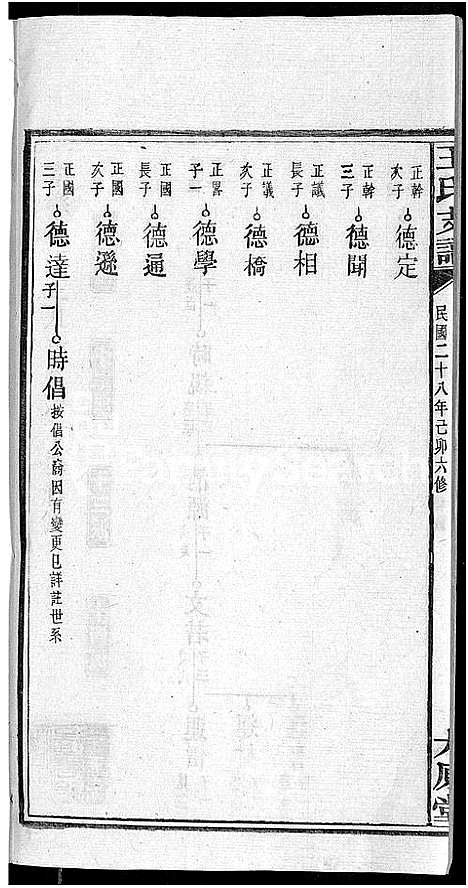 王氏支譜
民國二十八年己卯六修
正幹次子 德定
正幹三子 德聞
正議長子 德相
正議次子 德橋
正畧子一 德學
正國長子 德通
正國次子 德遜
正國三子 德達 子一 時倡 按倡公裔因有變更已詳註世系